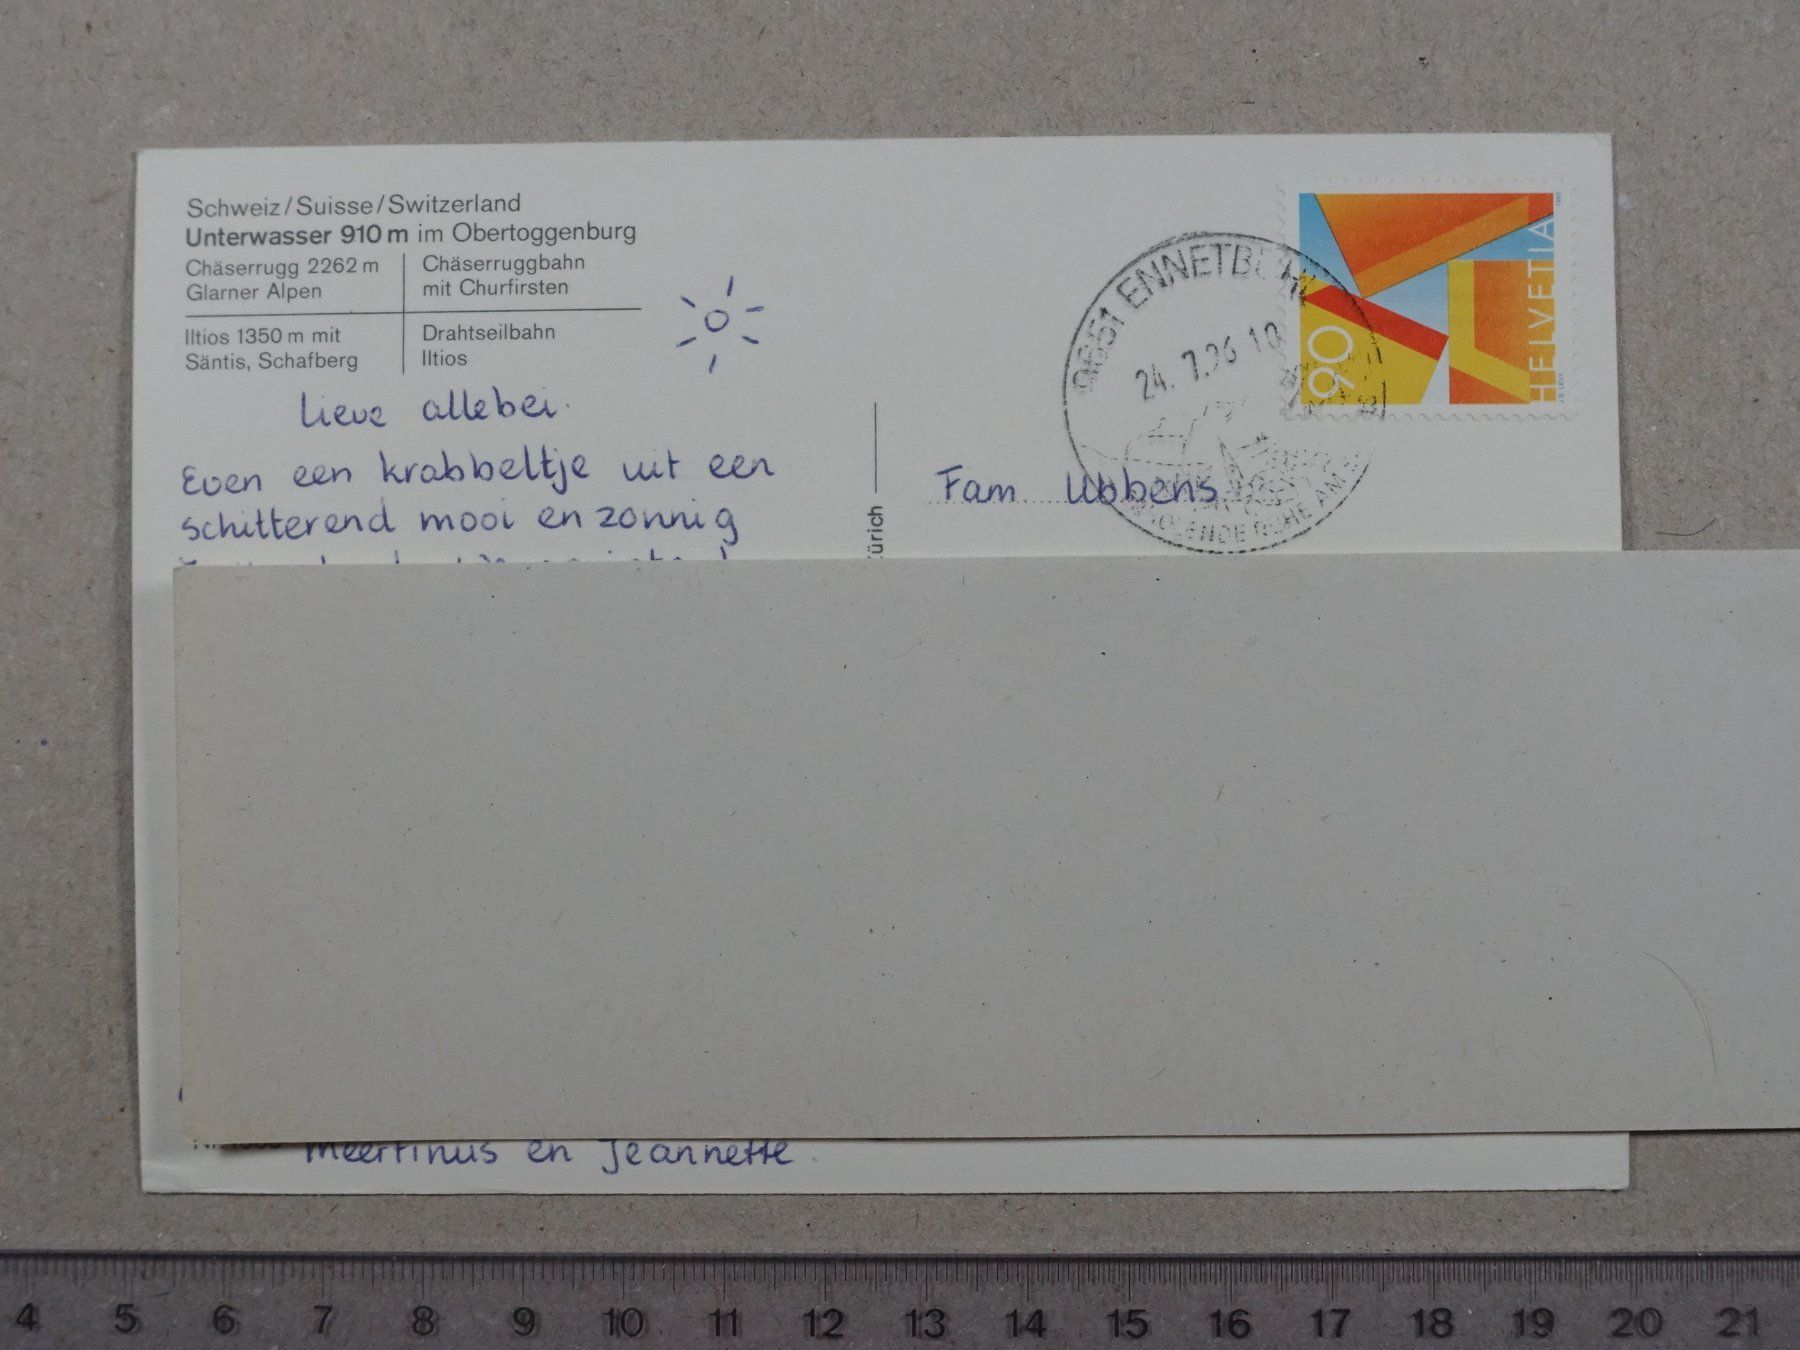 Schweiz/Suisse/Switzerland
Unterwasser 910 m im Obertoggenburg
Chäserrugg 2262 m
Glarner Alpen
Chäserruggbahn
mit Churfirsten
Iltios 1350 m mit
Säntis, Schafberg
Drahtseilbahn
Iltios
Lieve allebei.
Even een krabbeltje uit een
schitterend mooi en zonnig
Meertinus en Jeannette
ürich
9651 ENNETBÜHL
24. 7.96 18
RUHE AM
90
HELVETIA
Fam Ubbens
4 5 6 7 8 9 10 11 12 13 14 15 16 17 18 19 20 21